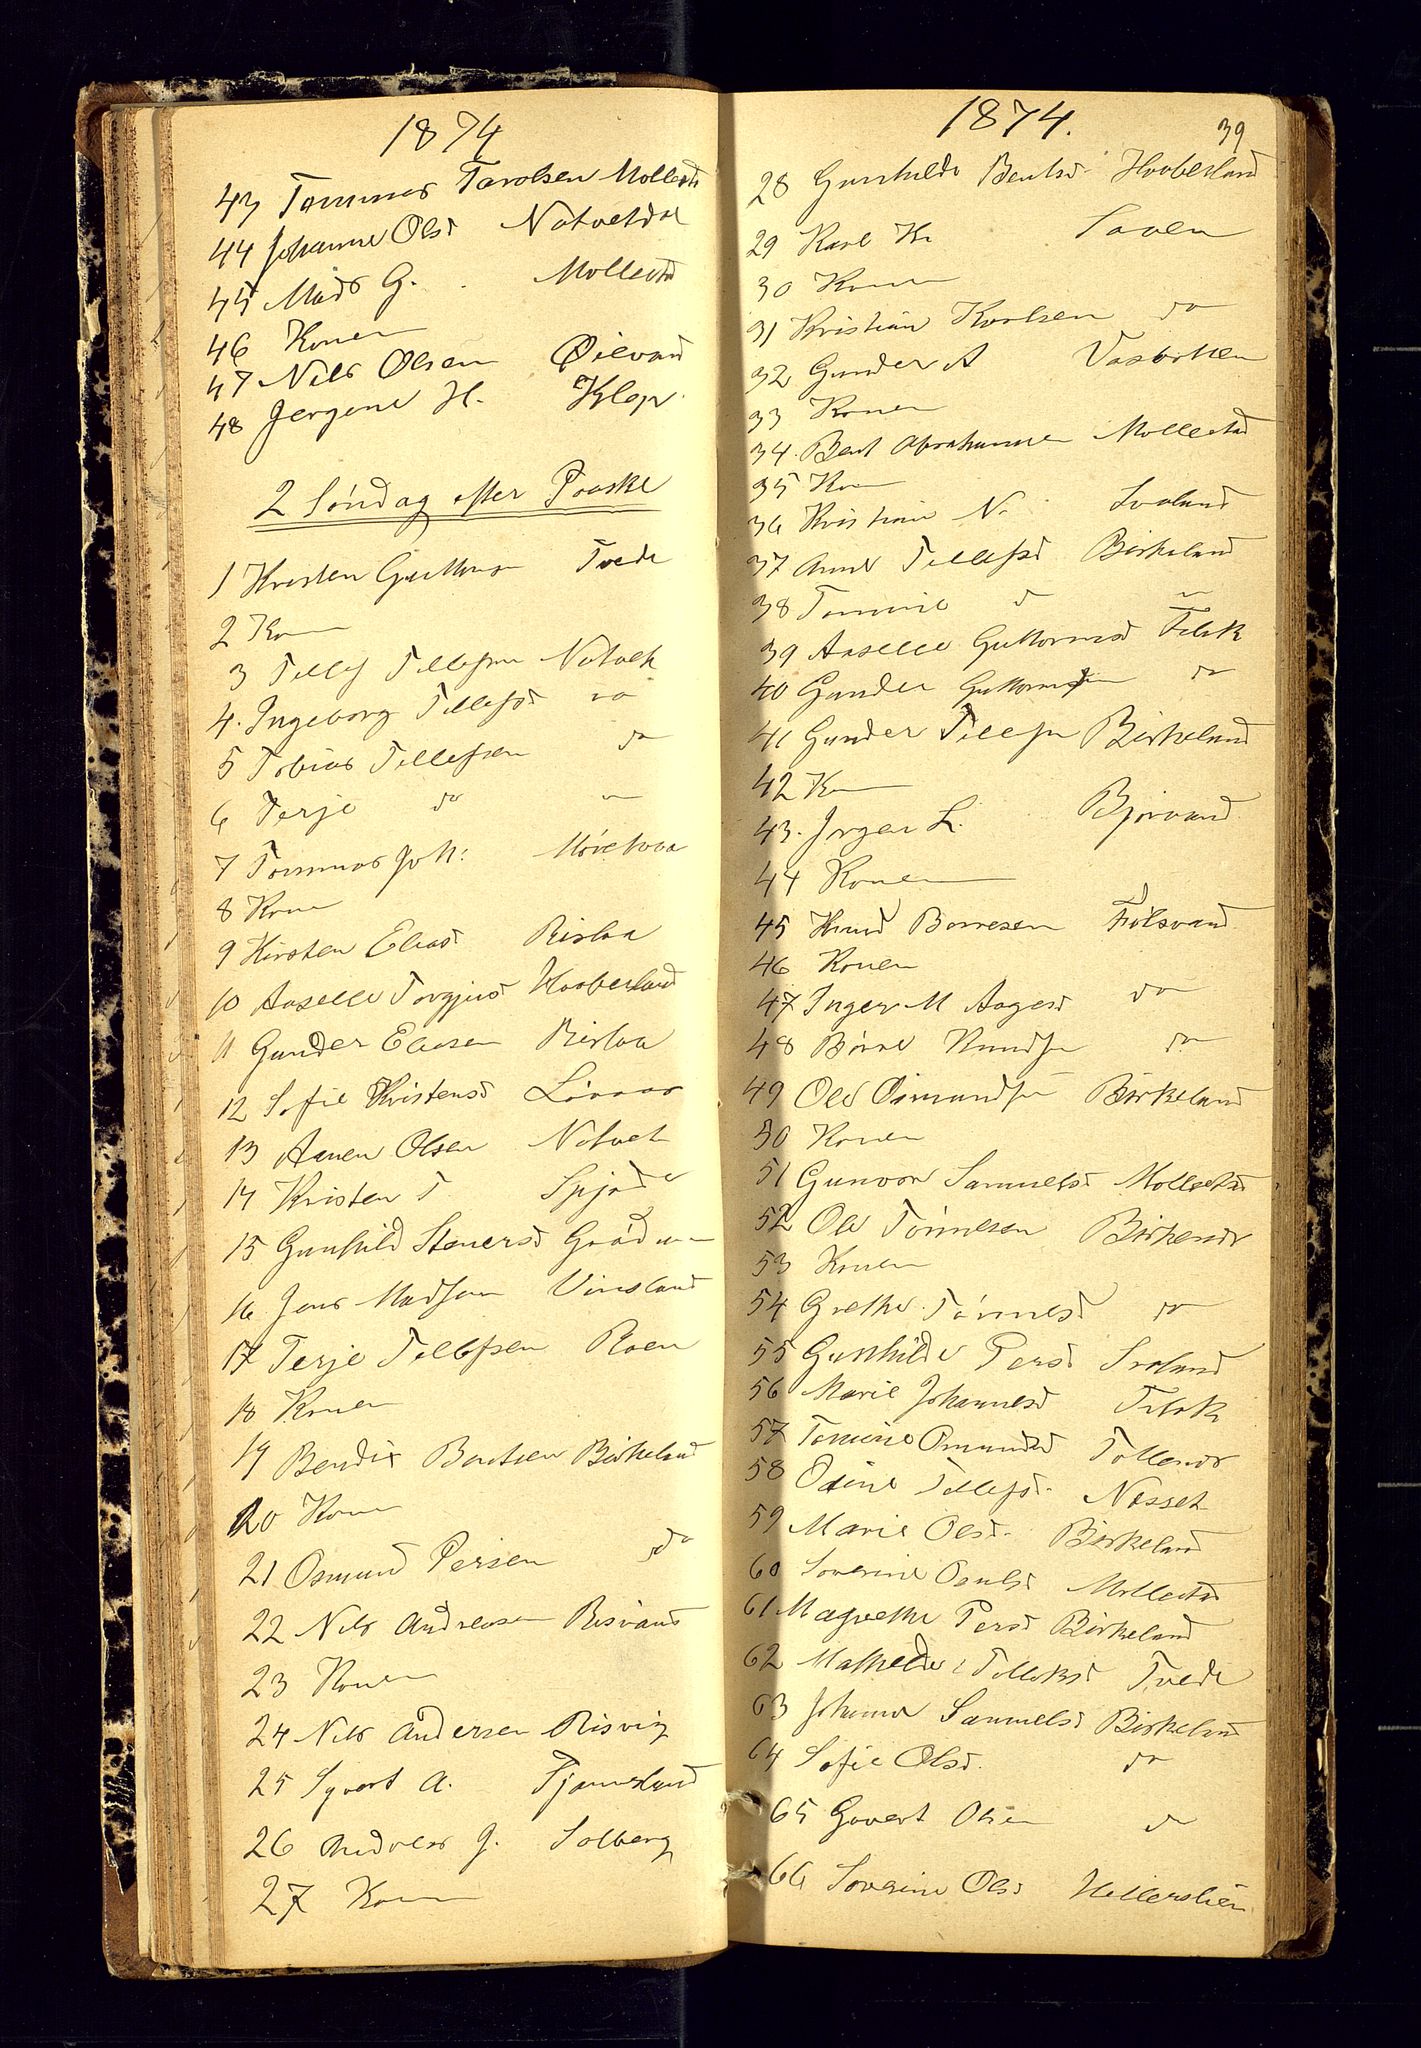 1874
43 Tommas Tarolsen Mollestd
44 Johanne Olsd Natvetdal
45 Mads G. Mollestd
46 Konen
47 Nils Olsen Øilvand
48 Jørgene H. Klep
2 Søndag efter Paaske
1 Kristen Guttormsen Tvede
2 Kon
3 Tellef Tellefsen Natvet
4. Ingeborg Tellefsd do
5 Tobias Tellefsen do
6 Terje do "
7 Tommas Joh:
8 Kone
9 Kirsten Eliasd Rislaa
10 Aaselle Torgjusd Haaberland
11 Gunder Eliasen Rislaa
12 Sofie Kristensd Løvaas
13 Aanen Olsen Natvet
14 Kristen T
15 Gunhild Steversd
16 Jens Madsen Vinsland
17 Terje Tellefsen Roen
18 Konen
19 Bendix Bentsen Birkeland
20 Kone
21 Osmund Persen do
22 Nils Andreasen Risvand
23 Konen
24 Nils Andersen Risvig
25 Syvert A. Tjomsland
26 Andreas J. Solberg
27 Kone
1874. 39
28 Gunhilde Bentsd Haaberland
29 Karl Kr
30 Konen
31 Kristian Karlsen do
32 Gunder A Vasbotten
33 Konen
34. Bent Abrahamsen Mollestad
35 Kon
36 Kristian N. Svaland
37 Anne Tellefsd Birkeland
38 Tomine d "
39 Aaselle Guttormsd Flak
40 Gunder Guttormsen do
41 Gunder Tellefsen Birkeland
42 Kon
43. Jørgen L. Bjorvand
44 Konen
45 Knud Børresen Fidsvand
46 Konen
47 Inger M Aagesd do
48 Børre Knudsen do
49 Ole Osmundsen Birkeland
50 Konen
51 Gunvor Samuelsd Mollestad
52 Ole Tønnesen Birkenes
53 Konen
54 Grethe Tønnesd do
55 Gunhilde Persd Svaland
56 Marie Johannesd Flak
57 Tomine Omundsd
58 Osine Tellefsd. Næsset
59 Marie Olsd. Birkeland
60 Severine Paulsd Mollestad
61 Magrethe Persd Birkeland
62 Mathilde Tellefsd Tvede
63 Johanne Samuelsd Birkeland
64 Sofie Olsd. do
65 Govert Olsen do
66 Severine Olsd